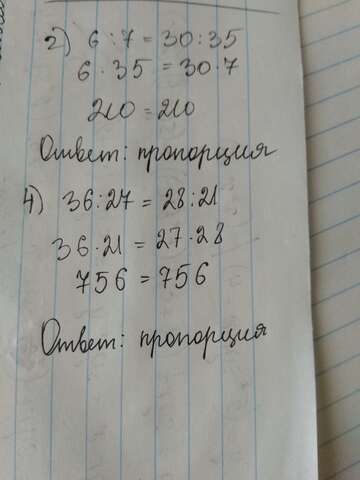 2) 6 : 7 = 30 : 35
6 · 35 = 30 · 7
210 = 210
Ответ: пропорция
4) 36 : 27 = 28 : 21
36 · 21 = 27 · 28
756 = 756
Ответ: пропорция